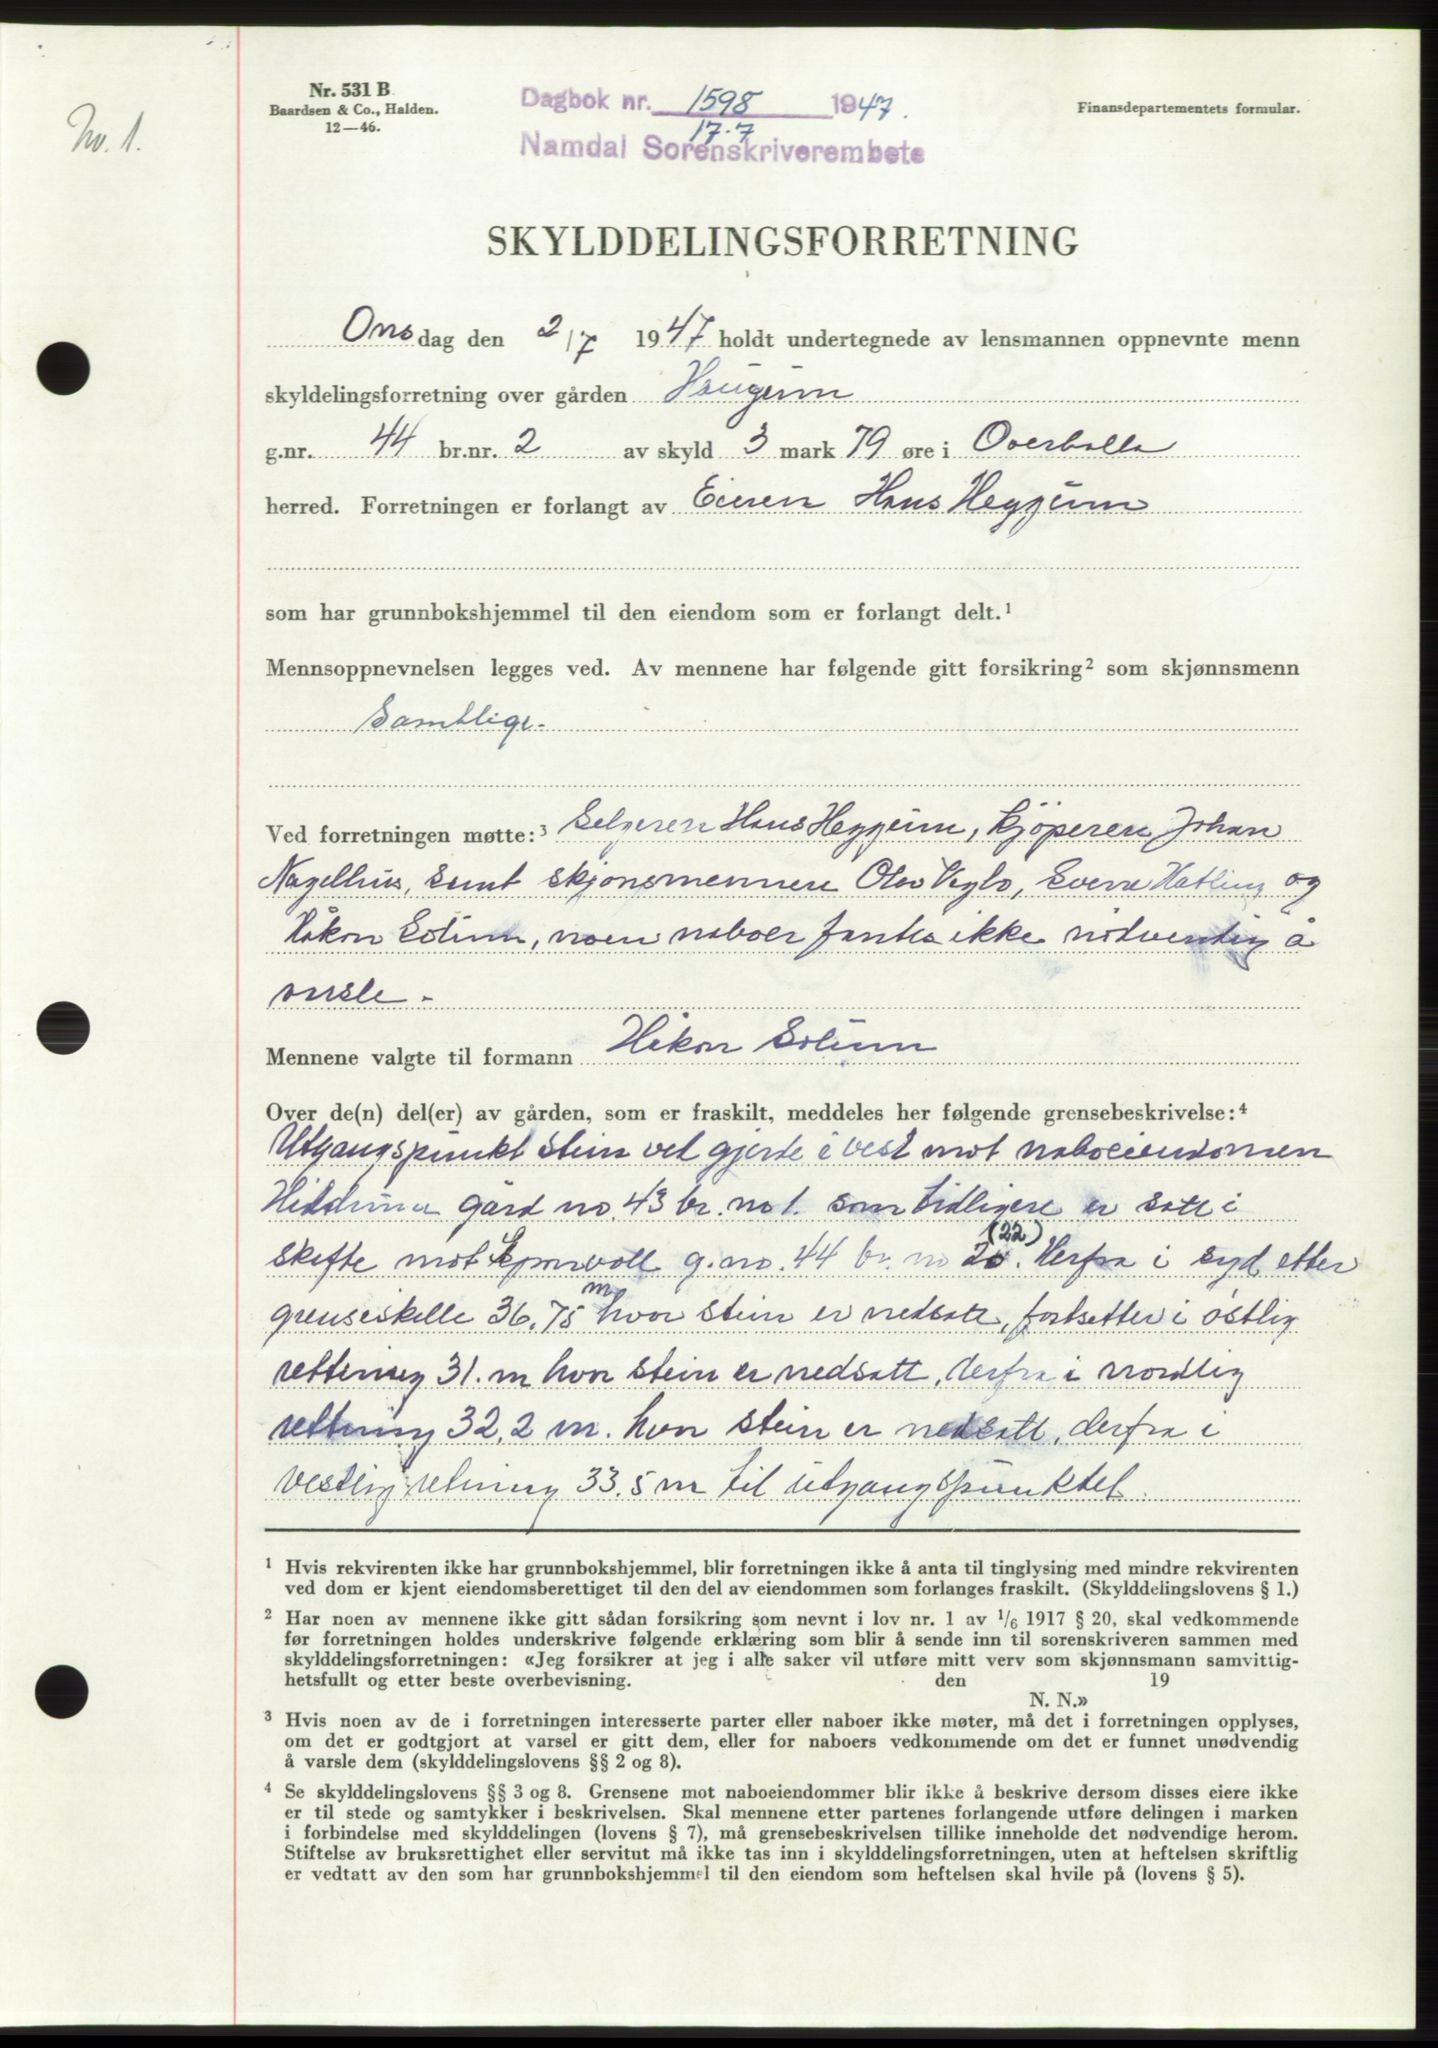 No. 1.
Nr. 531 B
Baardsen & Co., Halden.
12—46.
Dagbok nr. 1598 1947.
17-7
Namdal Sorenskriverembete
Finansdepartementets formular.
SKYLDDELINGSFORRETNING
Onsdag den 2/7 1947 holdt undertegnede av lensmannen oppnevnte menn
skyldelingsforretning over gården Haugum
g.nr. 44 br.nr. 2 av skyld 3 mark 79 øre i Overhalla
herred. Forretningen er forlangt av Eieren Hans Heggum
som har grunnbokshjemmel til den eiendom som er forlangt delt.1
Mennsoppnevnelsen legges ved. Av mennene har følgende gitt forsikring2 som skjønnsmenn
Samtlige.
Ved forretningen møtte:3 Selgeren Hans Heggum, Kjöperen Johan
Nagelhus, samt skjönsmennene Olav Veglo, Sverre Hatling og
Håkon Solum, noen naboer fantes ikke nödvendig å
varsle.
Mennene valgte til formann Håkon Solum
Over de(n) del(er) av gården, som er fraskilt, meddeles her følgende grensebeskrivelse:4
Utgangspunkt stein ved gjerde i vest mot naboeiendommen
gård no. 43 br. no 1. som tidligere er satt i
skifte mot g. no. 44 br. no 20. (22) Derfra i syd etter
grenseskille 36,75 m hvor stein er nedsatt, fortsetter i östlig
rettning 31. m hvor stein er nedsatt, derfra i nordlig
rettning 32,2 m. hvor stein er nedsatt, derfra i
vestlig retning 33.5 m til utgangspunktet.
1 Hvis rekvirenten ikke har grunnbokshjemmel, blir forretningen ikke å anta til tinglysing med mindre rekvirenten
ved dom er kjent eiendomsberettiget til den del av eiendommen som forlanges fraskilt. (Skylddelingslovens § 1.)
2 Har noen av mennene ikke gitt sådan forsikring som nevnt i lov nr. 1 av 1/6 1917 § 20, skal vedkommende
før forretningen holdes underskrive følgende erklæring som blir å sende inn til sorenskriveren sammen med
skylddelingsforretningen: «Jeg forsikrer at jeg i alle saker vil utføre mitt verv som skjønnsmann samvittig-
hetsfullt og etter beste overbevisning. den 19
N. N.»
3 Hvis noen av de i forretningen interesserte parter eller naboer ikke møter, må det i forretningen opplyses,
om det er godtgjort at varsel er gitt dem, eller for naboers vedkommende om det er funnet unødvendig
å varsle dem (skylddelingslovens §§ 2 og 8).
4 Se skylddelingslovens §§ 3 og 8. Grensene mot naboeiendommer blir ikke å beskrive dersom disses eiere ikke
er til stede og samtykker i beskrivelsen. Skal mennene etter partenes forlangende utføre delingen i marken
i forbindelse med skylddelingen (lovens § 7), må grensebeskrivelsen tillike inneholde det nødvendige herom.
Stiftelse av bruksrettighet eller servitut må ikke tas inn i skylddelingsforretningen, uten at heftelsen skriftlig
er vedtatt av den som har grunnbokshjemmel til den eiendom som heftelsen skal hvile på (lovens § 5).